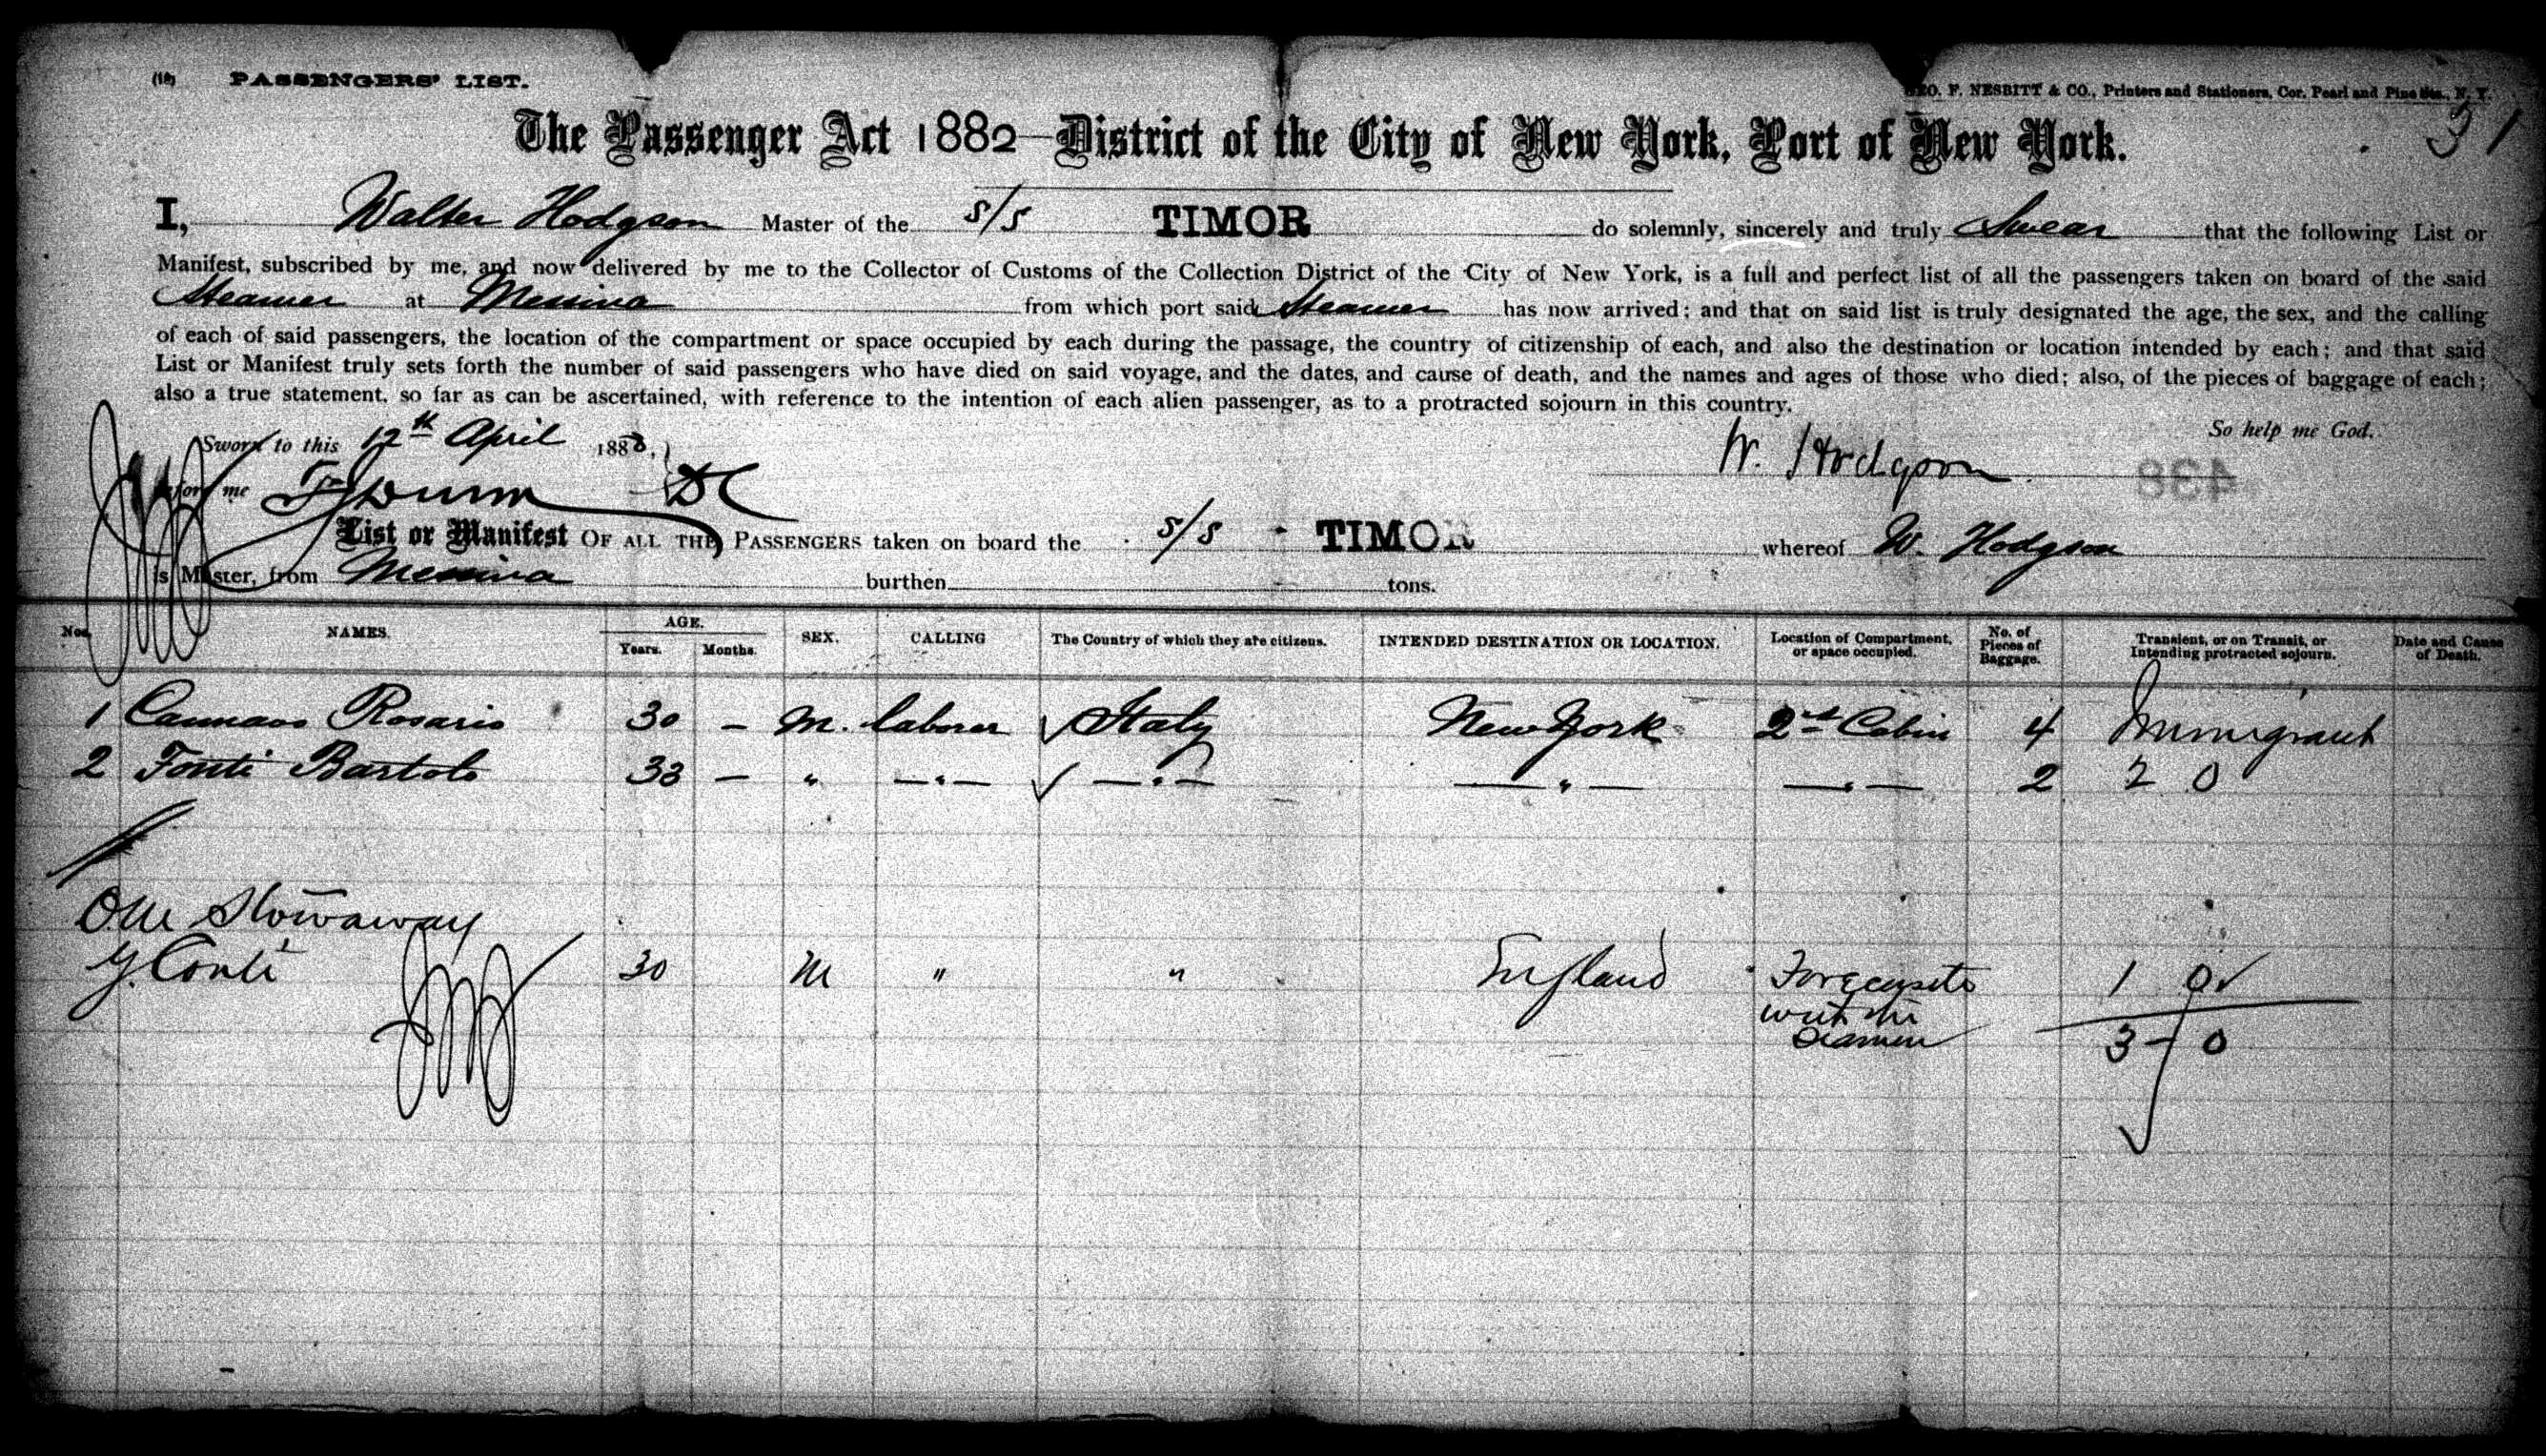 (18) PASSENGERS' LIST.
GEO. F. NESBITT & CO., Printers and Stationers, Cor. Pearl and Pine Sts., N. Y.
31
The Passenger Act 1882—District of the City of New York, Port of New York.
I, Walter Hodgson Master of the s/s TIMOR do solemnly, sincerely and truly Swear that the following List or
Manifest, subscribed by me, and now delivered by me to the Collector of Customs of the Collection District of the City of New York, is a full and perfect list of all the passengers taken on board of the said
Steamer at Messina from which port said Steamer has now arrived; and that on said list is truly designated the age, the sex, and the calling
of each of said passengers, the location of the compartment or space occupied by each during the passage, the country of citizenship of each, and also the destination or location intended by each; and that said
List or Manifest truly sets forth the number of said passengers who have died on said voyage, and the dates, and cause of death, and the names and ages of those who died; also, of the pieces of baggage of each;
also a true statement, so far as can be ascertained, with reference to the intention of each alien passenger, as to a protracted sojourn in this country.
So help me God.
Sworn to this 12th April 1888,
W. Hodgson
before me
438
List or Manifest OF ALL THE PASSENGERS taken on board the s/s TIMOR whereof W. Hodgson
is Master, from Messina burthen tons.
Nos. NAMES. AGE. Years. Months. SEX. CALLING The Country of which they are citizens. INTENDED DESTINATION OR LOCATION. Location of Compartment, or space occupied. No. of Pieces of Baggage. Transient, or on Transit, or Intending protracted sojourn. Date and Cause of Death.
1 Cannaos Rosario 30 — M. laborer ✓ Italy New York 2nd Cabin 4 Immigrant
2 Fonti Bartolo 33 — " — " — ✓ — " — — " — — " — 2 2 0
One Stowaway
G. Conti 30 M " " England Forecastle 1 0 ✓
with the
Seamen 3 — 0